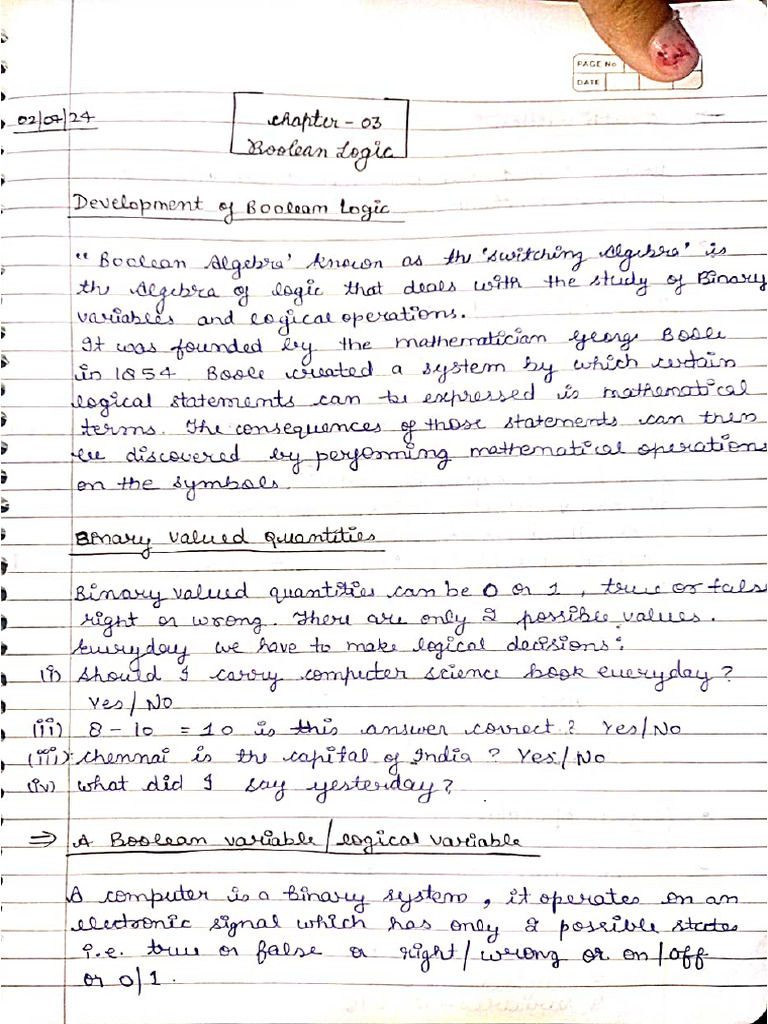 PAGE No
DATE
02/04/24
Chapter - 03
Boolean Logic
Development of Boolean Logic
"Boolean Algebra' known as the 'switching Algebra' is
the Algebra of logic that deals with the study of Binary
variables and logical operations.
It was founded by the mathematician George Boole
in 1854. Boole created a system by which certain
logical statements can be expressed is mathematical
terms. The consequences of those statements can then
be discovered by performing mathematical operations
on the symbols.
Binary Valued Quantities
Binary valued quantities can be 0 or 1, true or fals
right or wrong. There are only 2 possible values.
Everyday we have to make logical decisions:
(i) Should I carry computer science book everyday?
Yes/No
(ii) 8 - 10 = 10 is this answer correct? Yes/No
(iii) Chennai is the capital of India? Yes/No
(iv) What did I say yesterday?
⇒ A Boolean variable/logical variable
A computer is a binary system, it operates on an
electronic signal which has only 2 possible states
i.e. true or false or right/wrong or on/off
or 0/1.